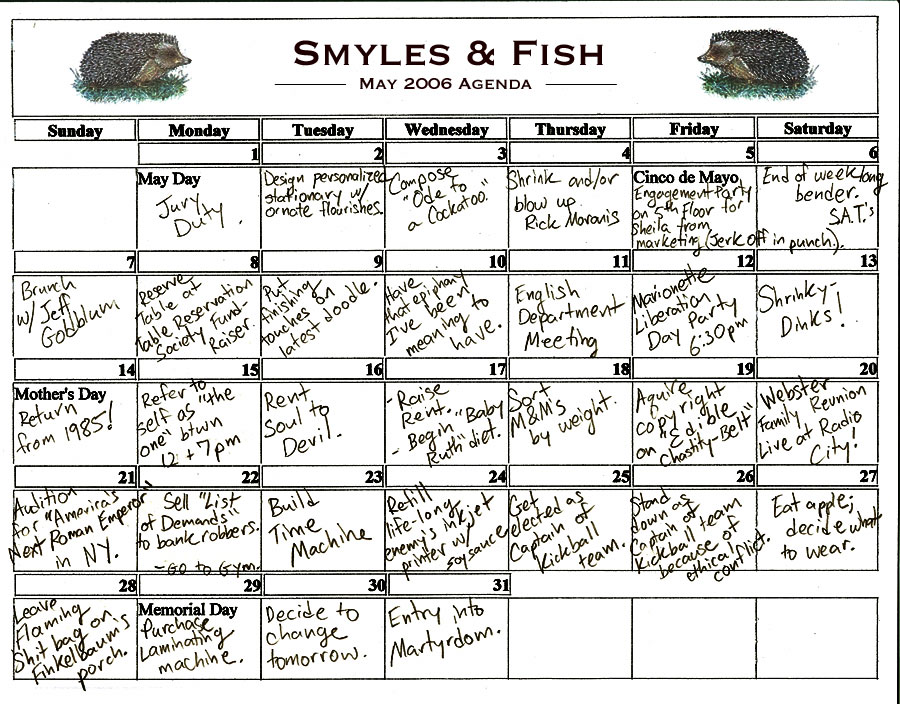 SMYLES & FISH
MAY 2006 AGENDA
Sunday Monday Tuesday Wednesday Thursday Friday Saturday
1 2 3 4 5 6
May Day
Jury
Duty.
Design personalized
stationary w/
ornate flourishes.
Compose
"Ode to
a Cockatoo."
Shrink and/or
blow up
Rick Moranis
Cinco de Mayo
Engagement Party
on 5th Floor for
Sheila from
marketing (Jerk off in punch).
End of week long
bender.
S.A.T.'s
7 8 9 10 11 12 13
Brunch
w/ Jeff
Goldblum
Reserve
Table at
Table Reservation
Society Fund-
Raiser.
Put
finishing
touches on
latest doodle.
Have
that epiphany
I've been
meaning to
have.
English
Department
Meeting
Marionette
Liberation
Day Party
6:30pm
Shrinky-
Dinks!
14 15 16 17 18 19 20
Mother's Day
Return
from 1985!
Refer to
self as "the
one" btwn
12 + 7pm
Rent
Soul to
Devil.
- Raise
Rent.
- Begin "Baby
Ruth" diet.
Sort
M&M's
by weight.
Aquire
copyright
on "Edible
Chastity-Belt"
Webster
Family Reunion
Live at Radio
City!
21 22 23 24 25 26 27
Audition
for "America's
Next Roman Emperor"
in NY.
Sell "List
of Demands"
to bank robbers.
- Go to Gym.
Build
Time
Machine
Refill
life-long
enemy's inkjet
printer w/
soy sauce
Get
elected as
Captain of
Kickball
team.
Stand
down as
Captain of
Kickball team
because of
ethical conflict.
Eat apple;
decide what
to wear.
28 29 30 31
Leave
Flaming
Shit bag on
Finkelbaum's
porch.
Memorial Day
Purchase
Laminating
machine.
Decide to
change
tomorrow.
Entry into
Martyrdom.